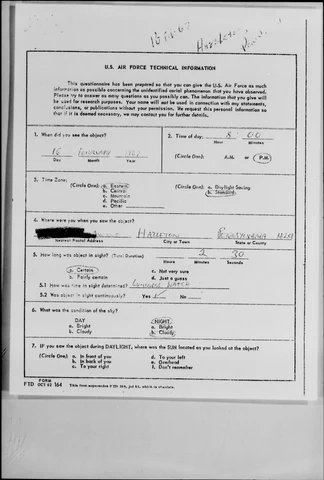 16 Feb 67
U.S. AIR FORCE TECHNICAL INFORMATION
This questionnaire has been prepared so that you can give the U.S. Air Force as much
information as possible concerning the unidentified aerial phenomenon that you have observed.
Please try to answer as many questions as you possibly can. The information that you give will
be used for research purposes. Your name will not be used in connection with any statements,
conclusions, or publications without your permission. We request this personal information so
that if it is deemed necessary, we may contact you for further details.
1. When did you see the object?
16 FEBRUARY 1967
Day Month Year
2. Time of day: 8 00
Hour Minutes
(Circle One): A.M. or P.M.
3. Time Zone:
(Circle One): a. Eastern
b. Central
c. Mountain
d. Pacific
e. Other
a. Daylight Saving
b. Standard
4. Where were you when you saw the object?
HAZLETON PENNSYLVANIA
Nearest Postal Address City or Town State or County
5. How long was object in sight? (Total Duration) 2 30
Hours Minutes Seconds
a. Certain c. Not very sure
b. Fairly certain d. Just a guess
5.1 How was time in sight determined? WATCH
5.2 Was object in sight continuously? Yes No
6. What was the condition of the sky?
DAY NIGHT
a. Bright a. Bright
b. Cloudy b. Cloudy
7. IF you saw the object during DAYLIGHT, where was the SUN located as you looked at the object?
(Circle One): a. In front of you d. To your left
b. In back of you e. Overhead
c. To your right f. Don't remember
FORM
FTD OCT 62 164 This form supersedes FTD 164, Jul 61, which is obsolete.